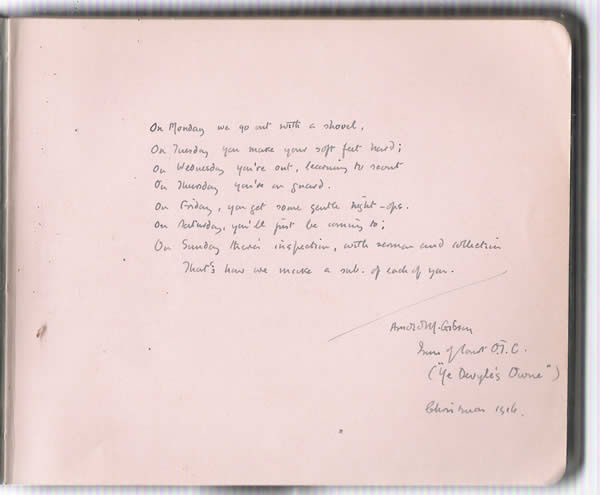 On Monday we go out with a shovel,
On Tuesday you make your soft feet hard;
On Wednesday you're out, learning to scout
On Thursday you're on guard.
On Friday, you get some gentle night-ops.
On Saturday, you'll just be coming to;
On Sunday there's inspection, with sermon and collection
That's how we make a sub. of each of you.
Arnold M. Gibson
Inns of Court O.T.C.
("Ye Devyle's Owne")
Christmas 1916.